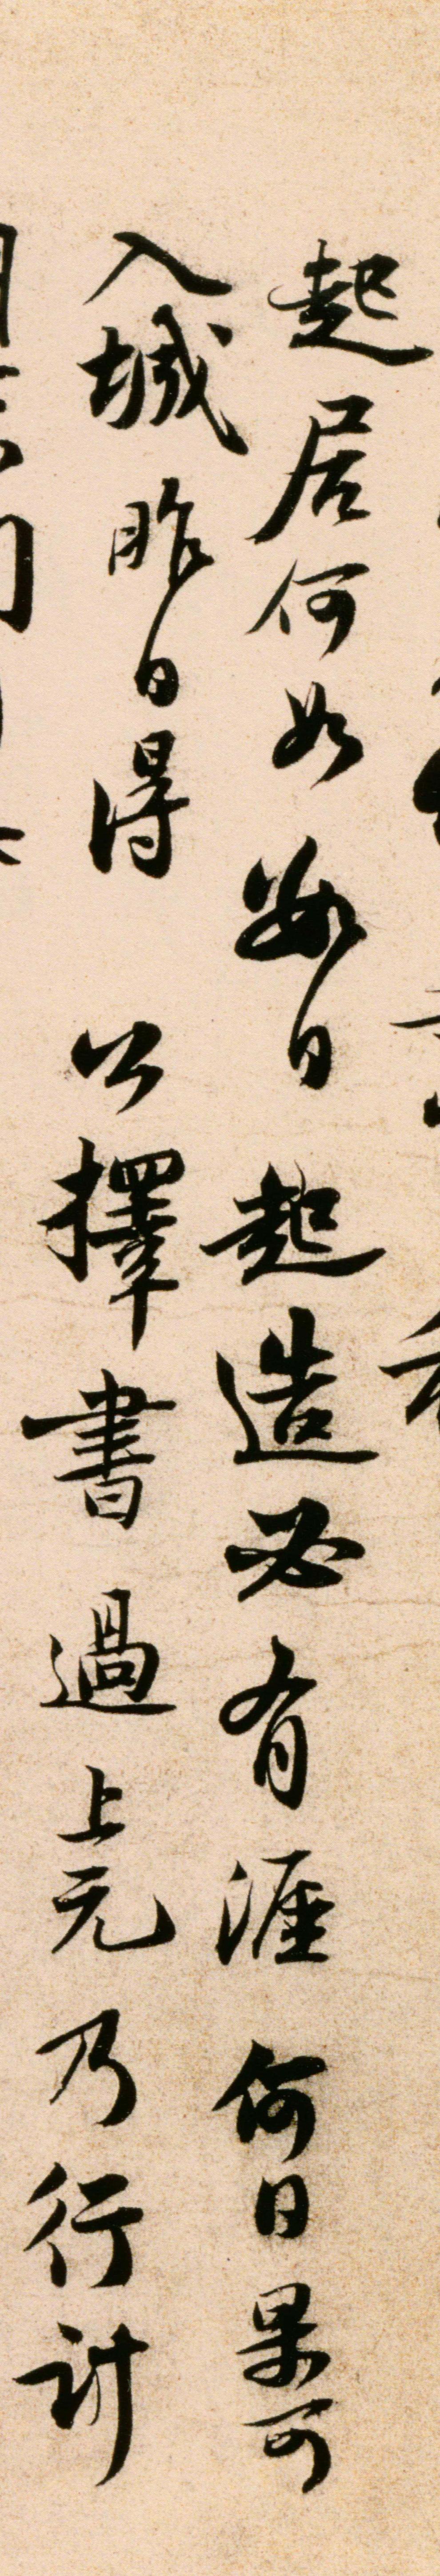 起居何如數日起造必有涯何日果可
入城昨日得公擇書過上元乃行計